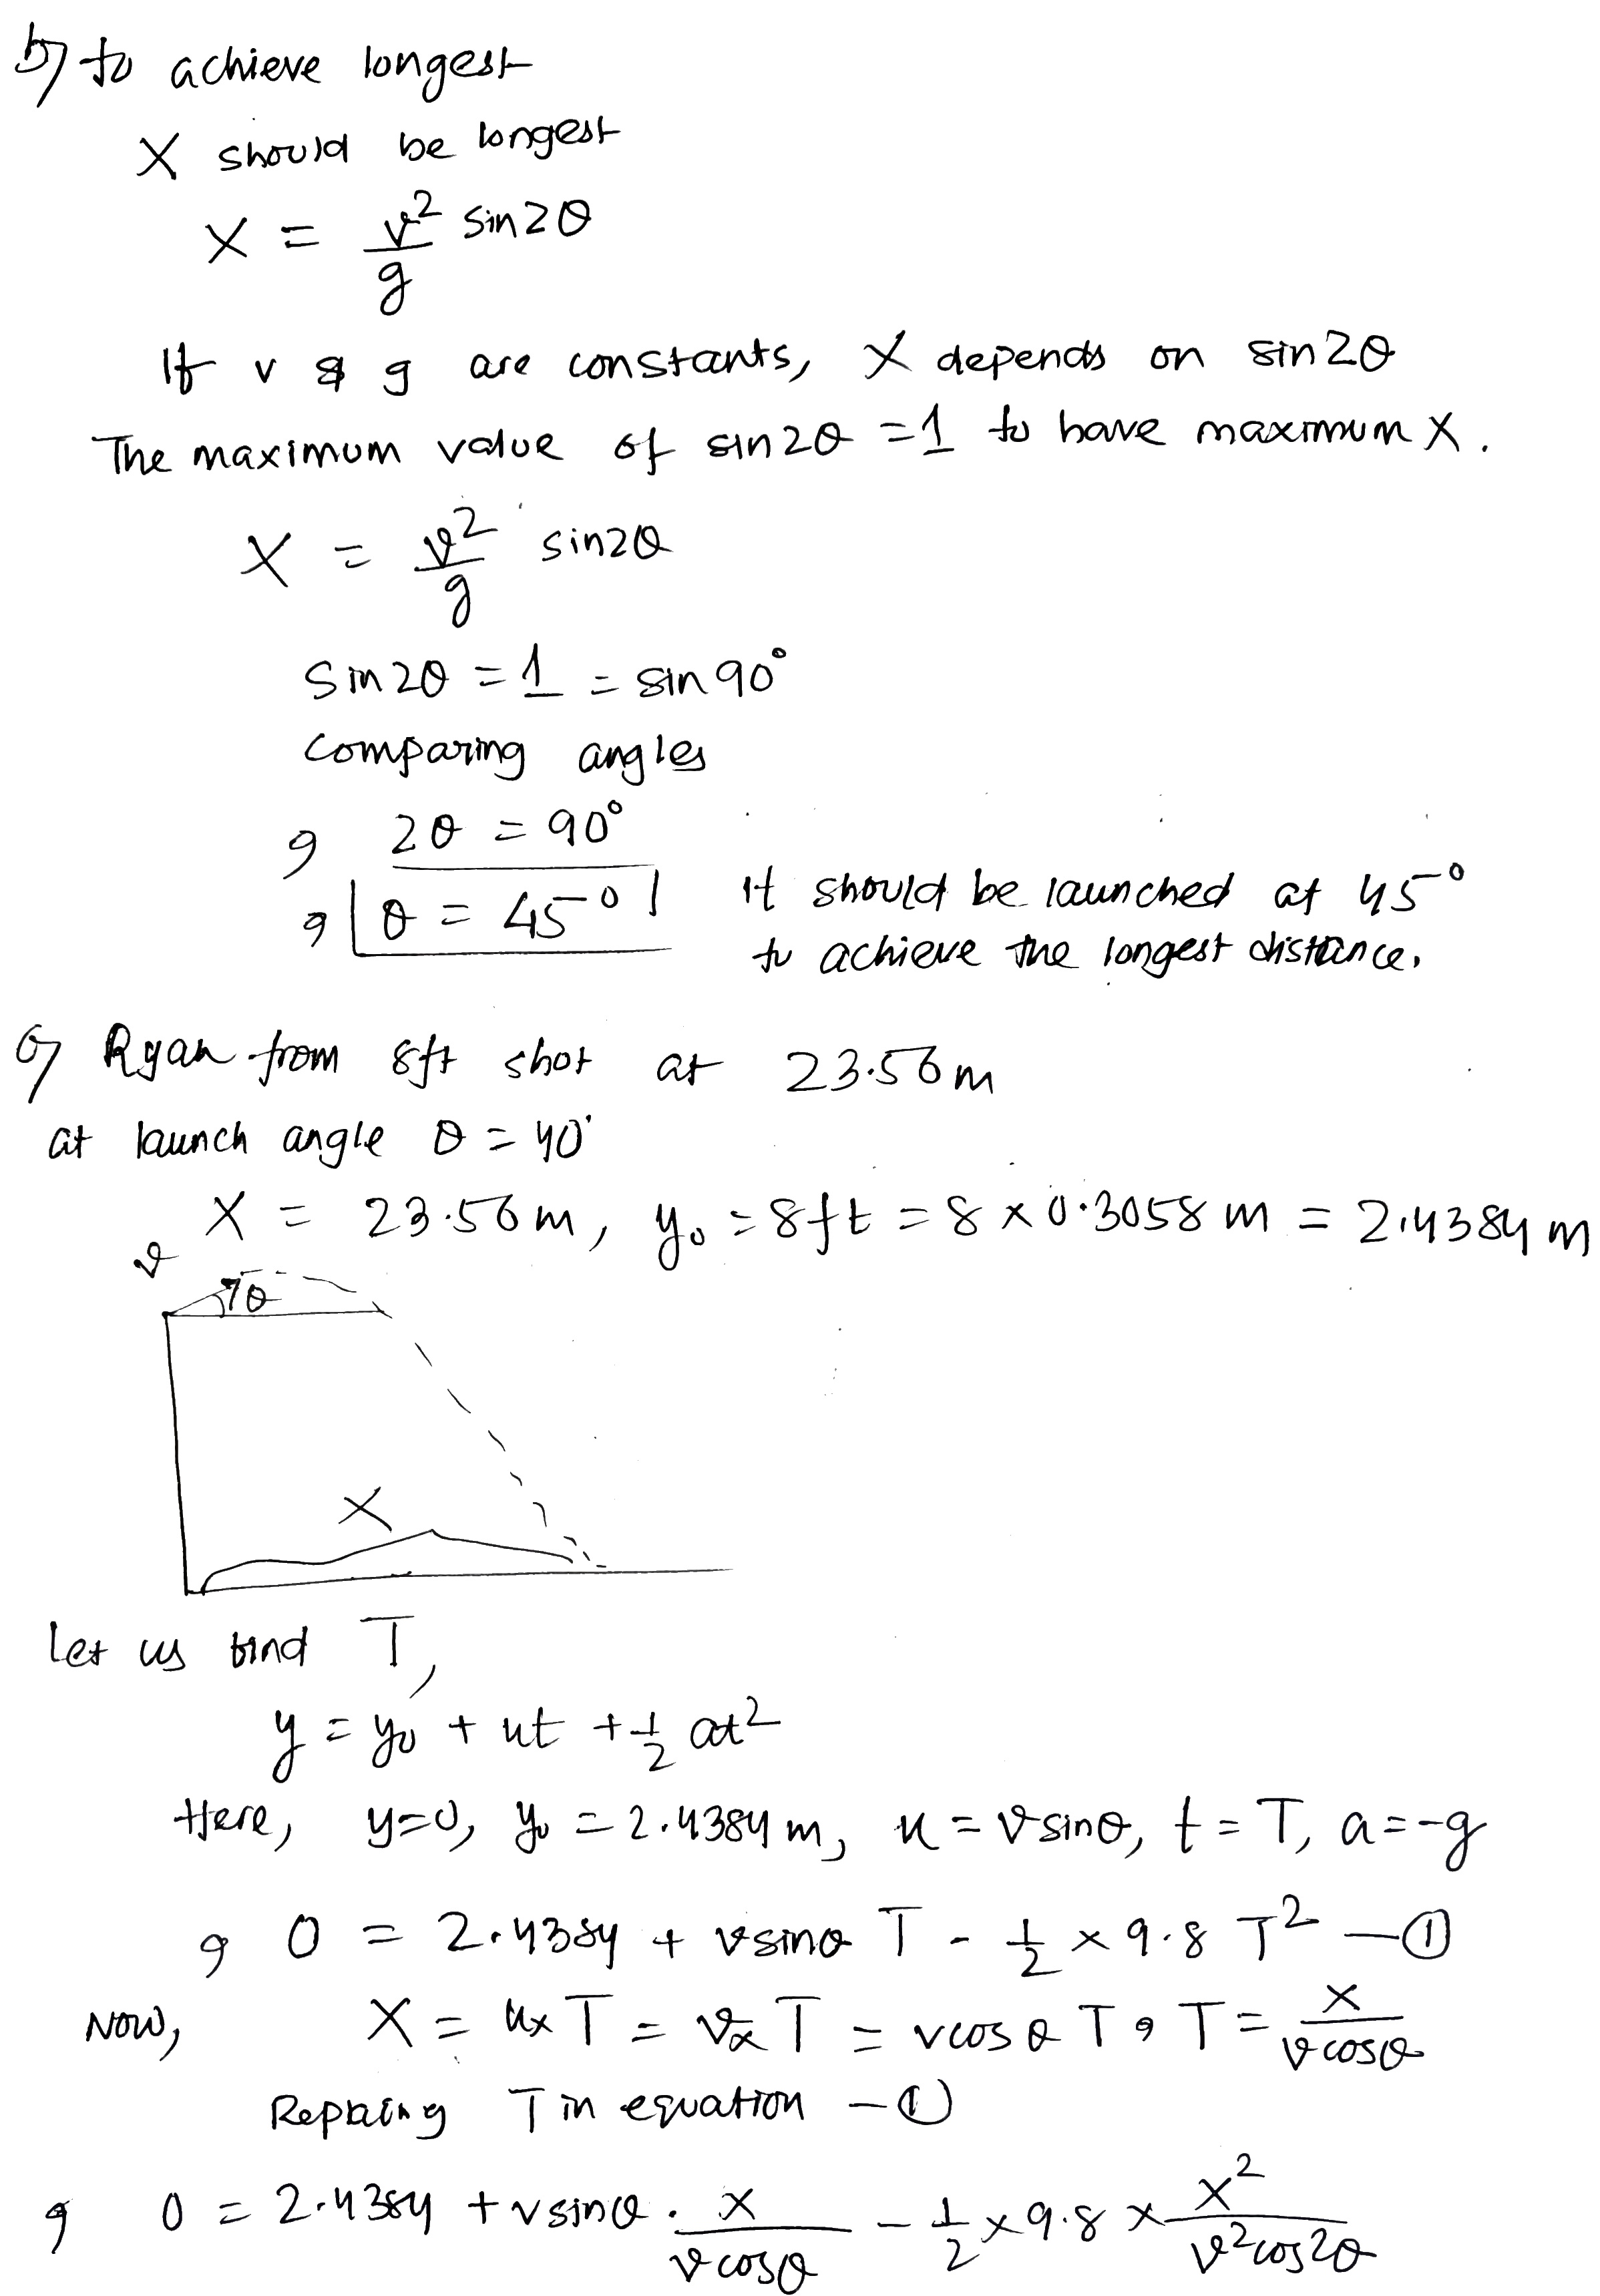 b) to achieve longest
X should be longest
X = v²/g sin2θ
If v & g are constants, X depends on sin2θ
The maximum value of sin2θ = 1 to have maximum X.
X = v²/g sin2θ
sin2θ = 1 = sin90°
comparing angles
, 2θ = 90°
, θ = 45° It should be launched at 45°
to achieve the longest distance.
c) Ryan from 8ft shot at 23.56m
at launch angle θ = 40°
X = 23.56m, y₀ = 8ft = 8 × 0.3058 m = 2.4384 m
v
θ
X
Let us find T,
y = y₀ + ut + ½ at²
Here, y=0, y₀ = 2.4384 m, u = vsinθ, t = T, a = -g
, 0 = 2.4384 + vsinθ T - ½ × 9.8 T² —①
Now, X = uₓT = vₓT = vcosθ T , T = x/vcosθ
Replacing T in equation —①
, 0 = 2.4384 + vsinθ . x/vcosθ - ½ × 9.8 × x²/v²cos2θ